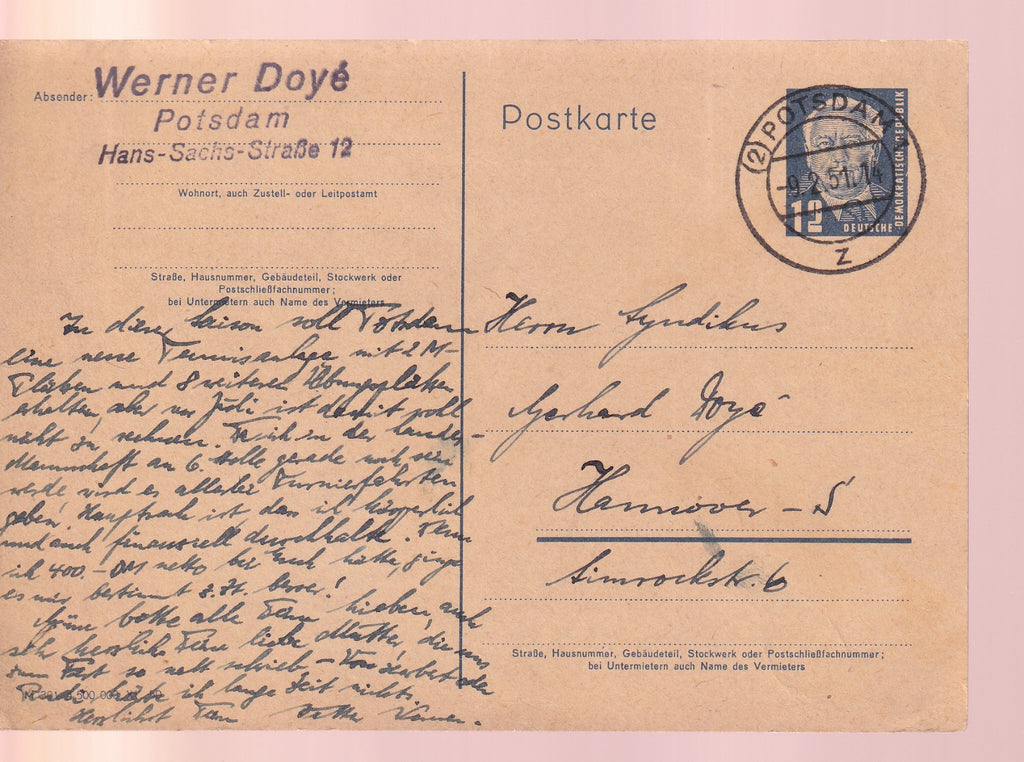 Absender:
Werner Doyé
Potsdam
Hans-Sachs-Straße 12
Wohnort, auch Zustell- oder Leitpostamt
Straße, Hausnummer, Gebäudeteil, Stockwerk oder
Postschließfachnummer;
bei Untermietern auch Name des Vermieters
Postkarte
(2) POTSDAM
-9.2.51.-14
z
12
DEUTSCHE
DEMOKRATISCHE REPUBLIK
Herrn Syndikus
Gerhard Doyé
Hannover - S
Simrockstr. 6
Straße, Hausnummer, Gebäudeteil, Stockwerk oder Postschließfachnummer;
bei Untermietern auch Name des Vermieters
In dieser Saison soll Potsdam
eine neue Tennisanlage mit 2 M-
Plätzen und 8 weiteren Übungsplätzen
erhalten, aber vor Juli ist damit wohl
nicht zu rechnen. Da ich in der Landes-
Mannschaft an 6. Stelle gerade noch sein
werde wird es allerlei Turnierfahrten
geben. Hauptsache ist das ich bürgerlich
und auch finanziell durchhalte. Wenn
ich 400.- DM netto bei Euch hätte, ginge
es mir bestimmt z. Zt. besser!
Grüne bitte alle Deinen lieben, auch
sehr herzlich Deine liebe Mutter, die uns
zum Fest so nett schrieb -
habe ich lange Zeit nichts
Herzlichst Dein Vetter Werner.